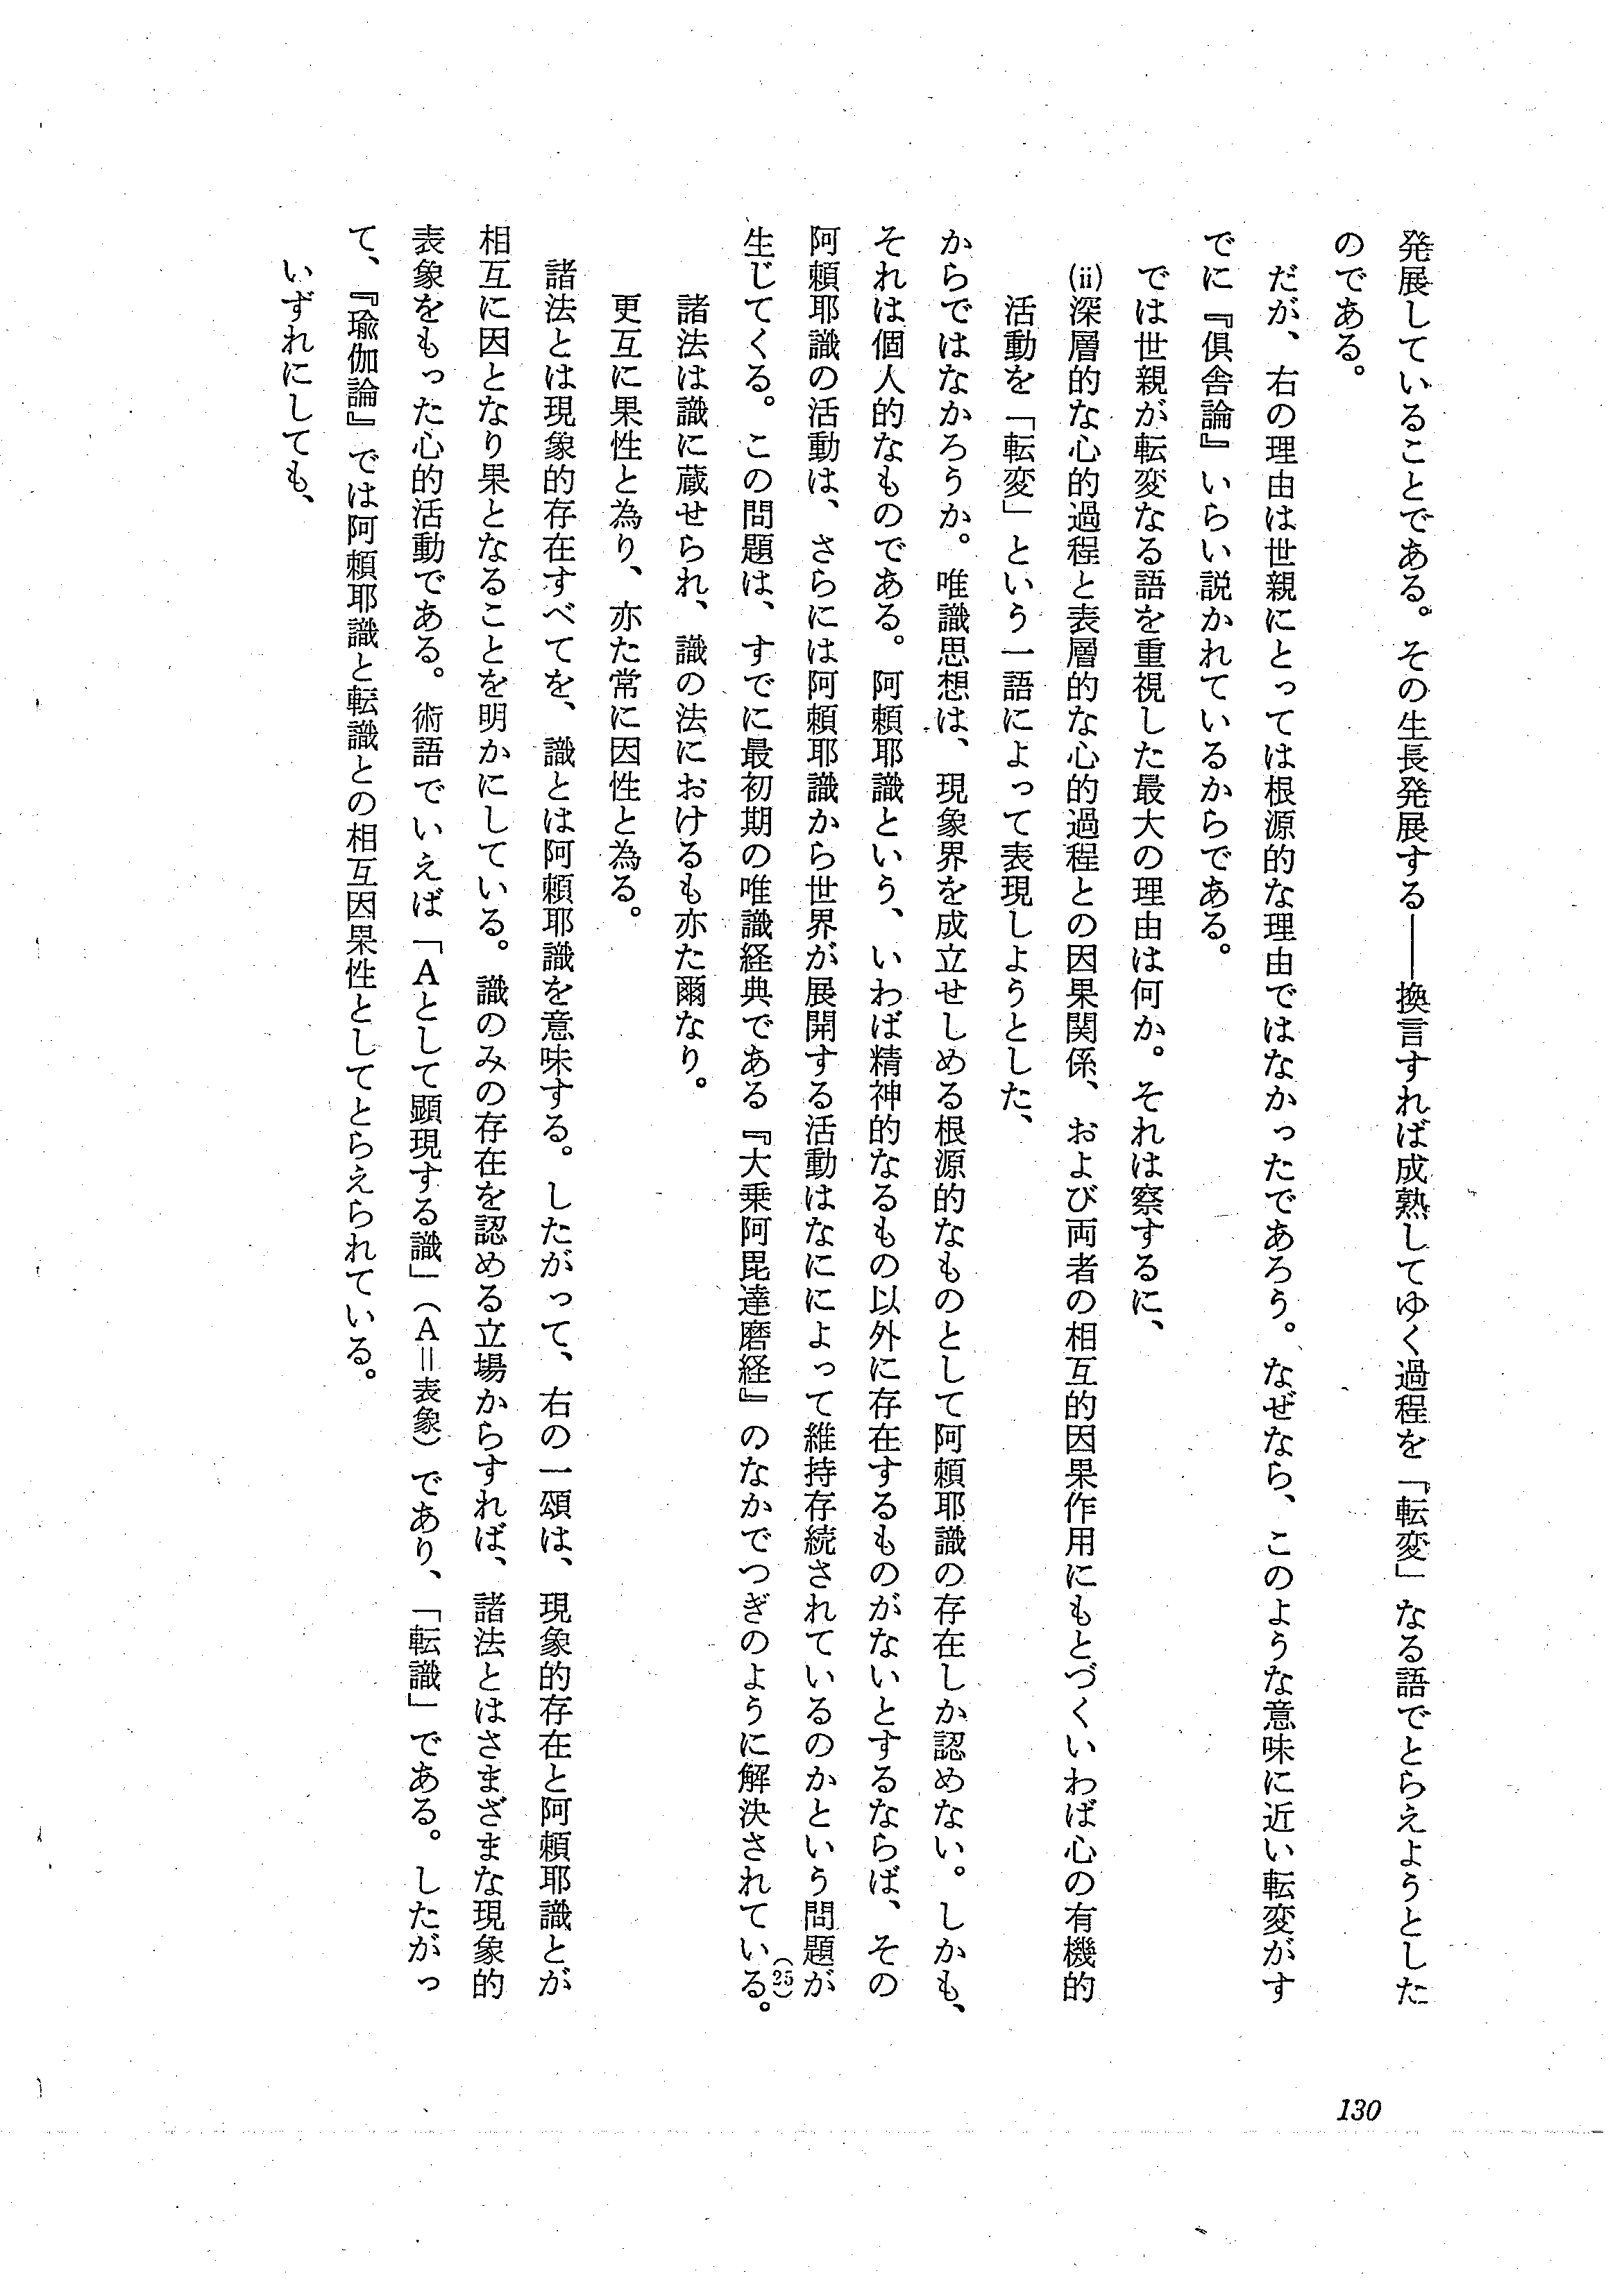 発展していることである。その生長発展する――換言すれば成熟してゆく過程を「転変」なる語でとらえようとした
のである。
だが、右の理由は世親にとっては根源的な理由ではなかったであろう。なぜなら、このような意味に近い転変がす
でに『倶舎論』いらい説かれているからである。
では世親が転変なる語を重視した最大の理由は何か。それは察するに、
(ii)深層的な心的過程と表層的な心的過程との因果関係、および両者の相互的因果作用にもとづくいわば心の有機的
活動を「転変」という一語によって表現しようとした、
からではなかろうか。唯識思想は、現象界を成立せしめる根源的なものとして阿頼耶識の存在しか認めない。しかも、
それは個人的なものである。阿頼耶識という、いわば精神的なるもの以外に存在するものがないとするならば、その
阿頼耶識の活動は、さらには阿頼耶識から世界が展開する活動はなにによって維持存続されているのかという問題が
生じてくる。この問題は、すでに最初期の唯識経典である『大乗阿毘達磨経』のなかでつぎのように解決されている。(25)
諸法は識に蔵せられ、識の法におけるも亦た爾なり。
更互に果性と為り、亦た常に因性と為る。
諸法とは現象的存在すべてを、識とは阿頼耶識を意味する。したがって、右の一頌は、現象的存在と阿頼耶識とが
相互に因となり果となることを明かにしている。識のみの存在を認める立場からすれば、諸法とはさまざまな現象的
表象をもった心的活動である。術語でいえば「Aとして顕現する識」（A＝表象）であり、「転識」である。したがっ
て、『瑜伽論』では阿頼耶識と転識との相互因果性としてとらえられている。
いずれにしても、
130